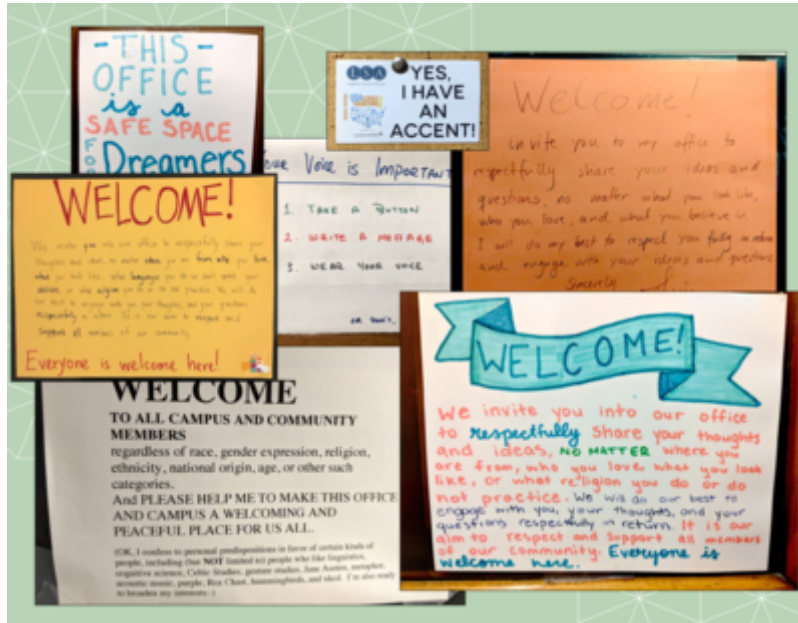 - THIS -
OFFICE
is a
SAFE SPACE
FOR
Dreamers
LSA
YES,
I HAVE
AN
ACCENT!
Welcome!
invite you to my office to
respectfully share your ideas and
questions, no matter what you look like,
who you love, and what you believe in.
I will do my best to respect you fully in return
and engage with your ideas and questions
Sincerely
Your Voice is IMPORTANT
1. TAKE A BUTTON
2. WRITE A MESSAGE
3. WEAR YOUR VOICE
OR DON'T.
WELCOME!
We invite you into our office to respectfully share your
thoughts and ideas, no matter where you are from, who you love,
what you look like, what language you do or don't speak, your
or what religion you do or do not practice. We will do
our best to engage with you, your thoughts, and your questions
respectfully in return. It is our aim to respect and
support all members of our community.
Everyone is welcome here!
WELCOME
TO ALL CAMPUS AND COMMUNITY
MEMBERS
regardless of race, gender expression, religion,
ethnicity, national origin, age, or other such
categories.
And PLEASE HELP ME TO MAKE THIS OFFICE
AND CAMPUS A WELCOMING AND
PEACEFUL PLACE FOR US ALL.
(OK, I confess to personal predispositions in favor of certain kinds of
people, including (but NOT limited to) people who like linguistics,
cognitive science, Celtic Studies, gesture studies, Jane Austen, metaphor,
acoustic music, purple, Roz Chast, hummingbirds, and skol. I'm also ready
to broaden my interests :-)
WELCOME!
We invite you into our office
to respectfully share your thoughts
and ideas, NO MATTER where you
are from, who you love, what you look
like, or what religion you do or do
not practice. We will do our best to
engage with you, your thoughts, and your
questions respectfully in return. It is our
aim to respect and support all members
of our community. Everyone is
welcome here.